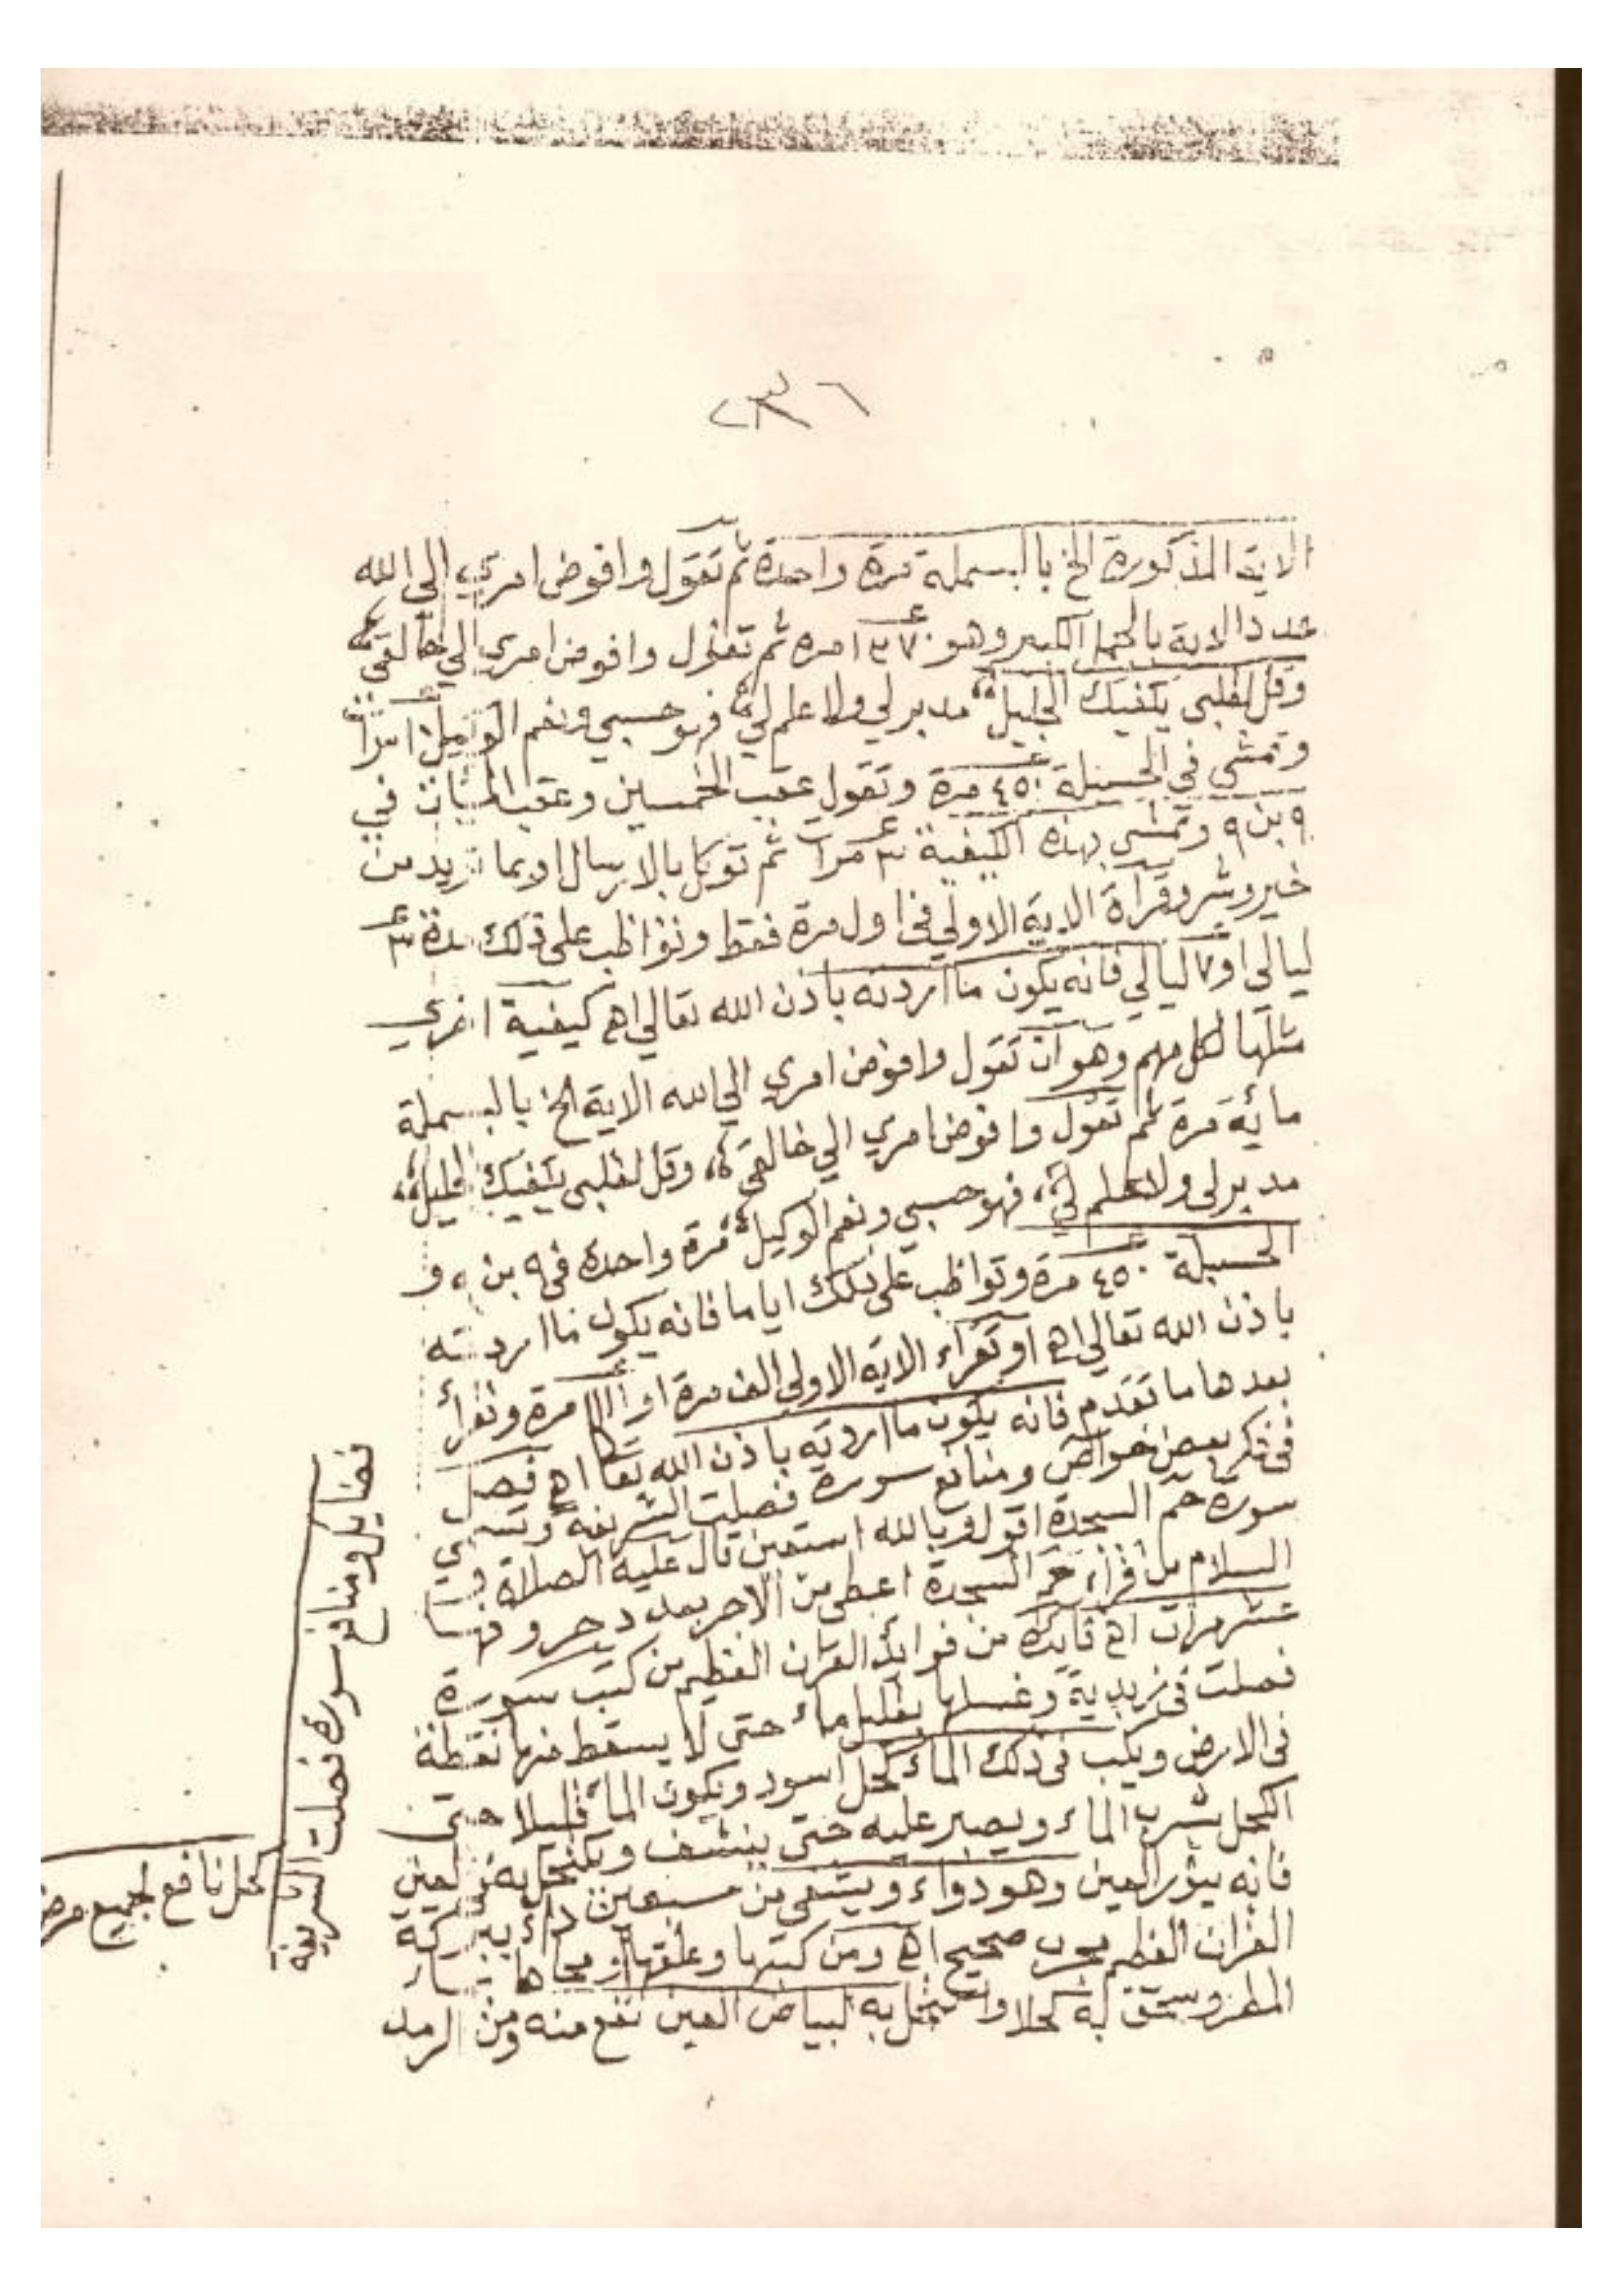 ٢٣٦
الاية المذكورة الخ بالبسملة مرة واحدة ثم تقول وافوض امري الي الله
عدد الاية بالجمل الكبير وهو ١٣٧٠ مرة ثم تقول وافوض امري الي خالقي
وقل لقلبي يكفيك الجليل مدبر لي ولا علم لي فهو حسبي ونعم الوكيل
وتمشي في الحسبلة ٤٥٠ مرة وتقول عقب الخمسين وعقب الميات في
٩ بن ٩ وتمشي بهذه الكيفية ٣ مرات ثم توكل بالارسال او بما تريد من
خير وشر وقراة الاية الاولي في اول مرة فقط وتواظب على ذلك مدة ٣
ليالي او ٧ ليالي فانه يكون ما اردته باذن الله تعالي اھ كيفية اخري
مثلها لكل مهم وهو ان تقول وافوض امري الي الله الاية الخ بالبسملة
مائة مرة ثم تقول وافوض امري الي خالقي وقل لقلبي يكفيك الجليل
مدبر لى ولا علم لي فهو حسبي ونعم الوكيل مرة واحدة في ٩ بن ٩ و
الحسبلة ٤٥٠ مرة وتواظب على ذلك اياما فانه يكون ما اردته
باذن الله تعالي اھ او تقراء الاية الاولى الف مرة او مرة وتقرأ
بعدها ما تقدم فانه يكون ما اردته باذن الله تعا اھ فصل
فى ذكر بعض خواص ومنافع سورة فصلت الشريفة وتسمي
سورة حم السجدة اقول وبالله استعين قال عليه الصلاة و
السلام من قراء حم السجدة اعطى من الاجر بعدد حروفها
عشر مرات اھ فايدة من فوائد القران العظيم من كتب سورة
فصلت فى زبدية وغسلها بقليل ماء حتى لا يسقط منها نقطة
فى الارض ويكب فى ذلك الماء كحل اسود ويكون الماء قليلا حتى
الكحل يشرب الماء ويصبر عليه حتى ينشف ويكتحل به فى العين
فانه ينور العين وهو دواء ويشفي من سبعين داء ببركة
القران العظيم مجرب صحيح اھ ومن كتبها وعلقها او محاها بماء
المطر وسحق به كحلا واكتحل به لبياض العين نفع منه ومن الرمد
فضايل ومنافع سورة فصلت الشريفة
كحل نافع لجميع مرض